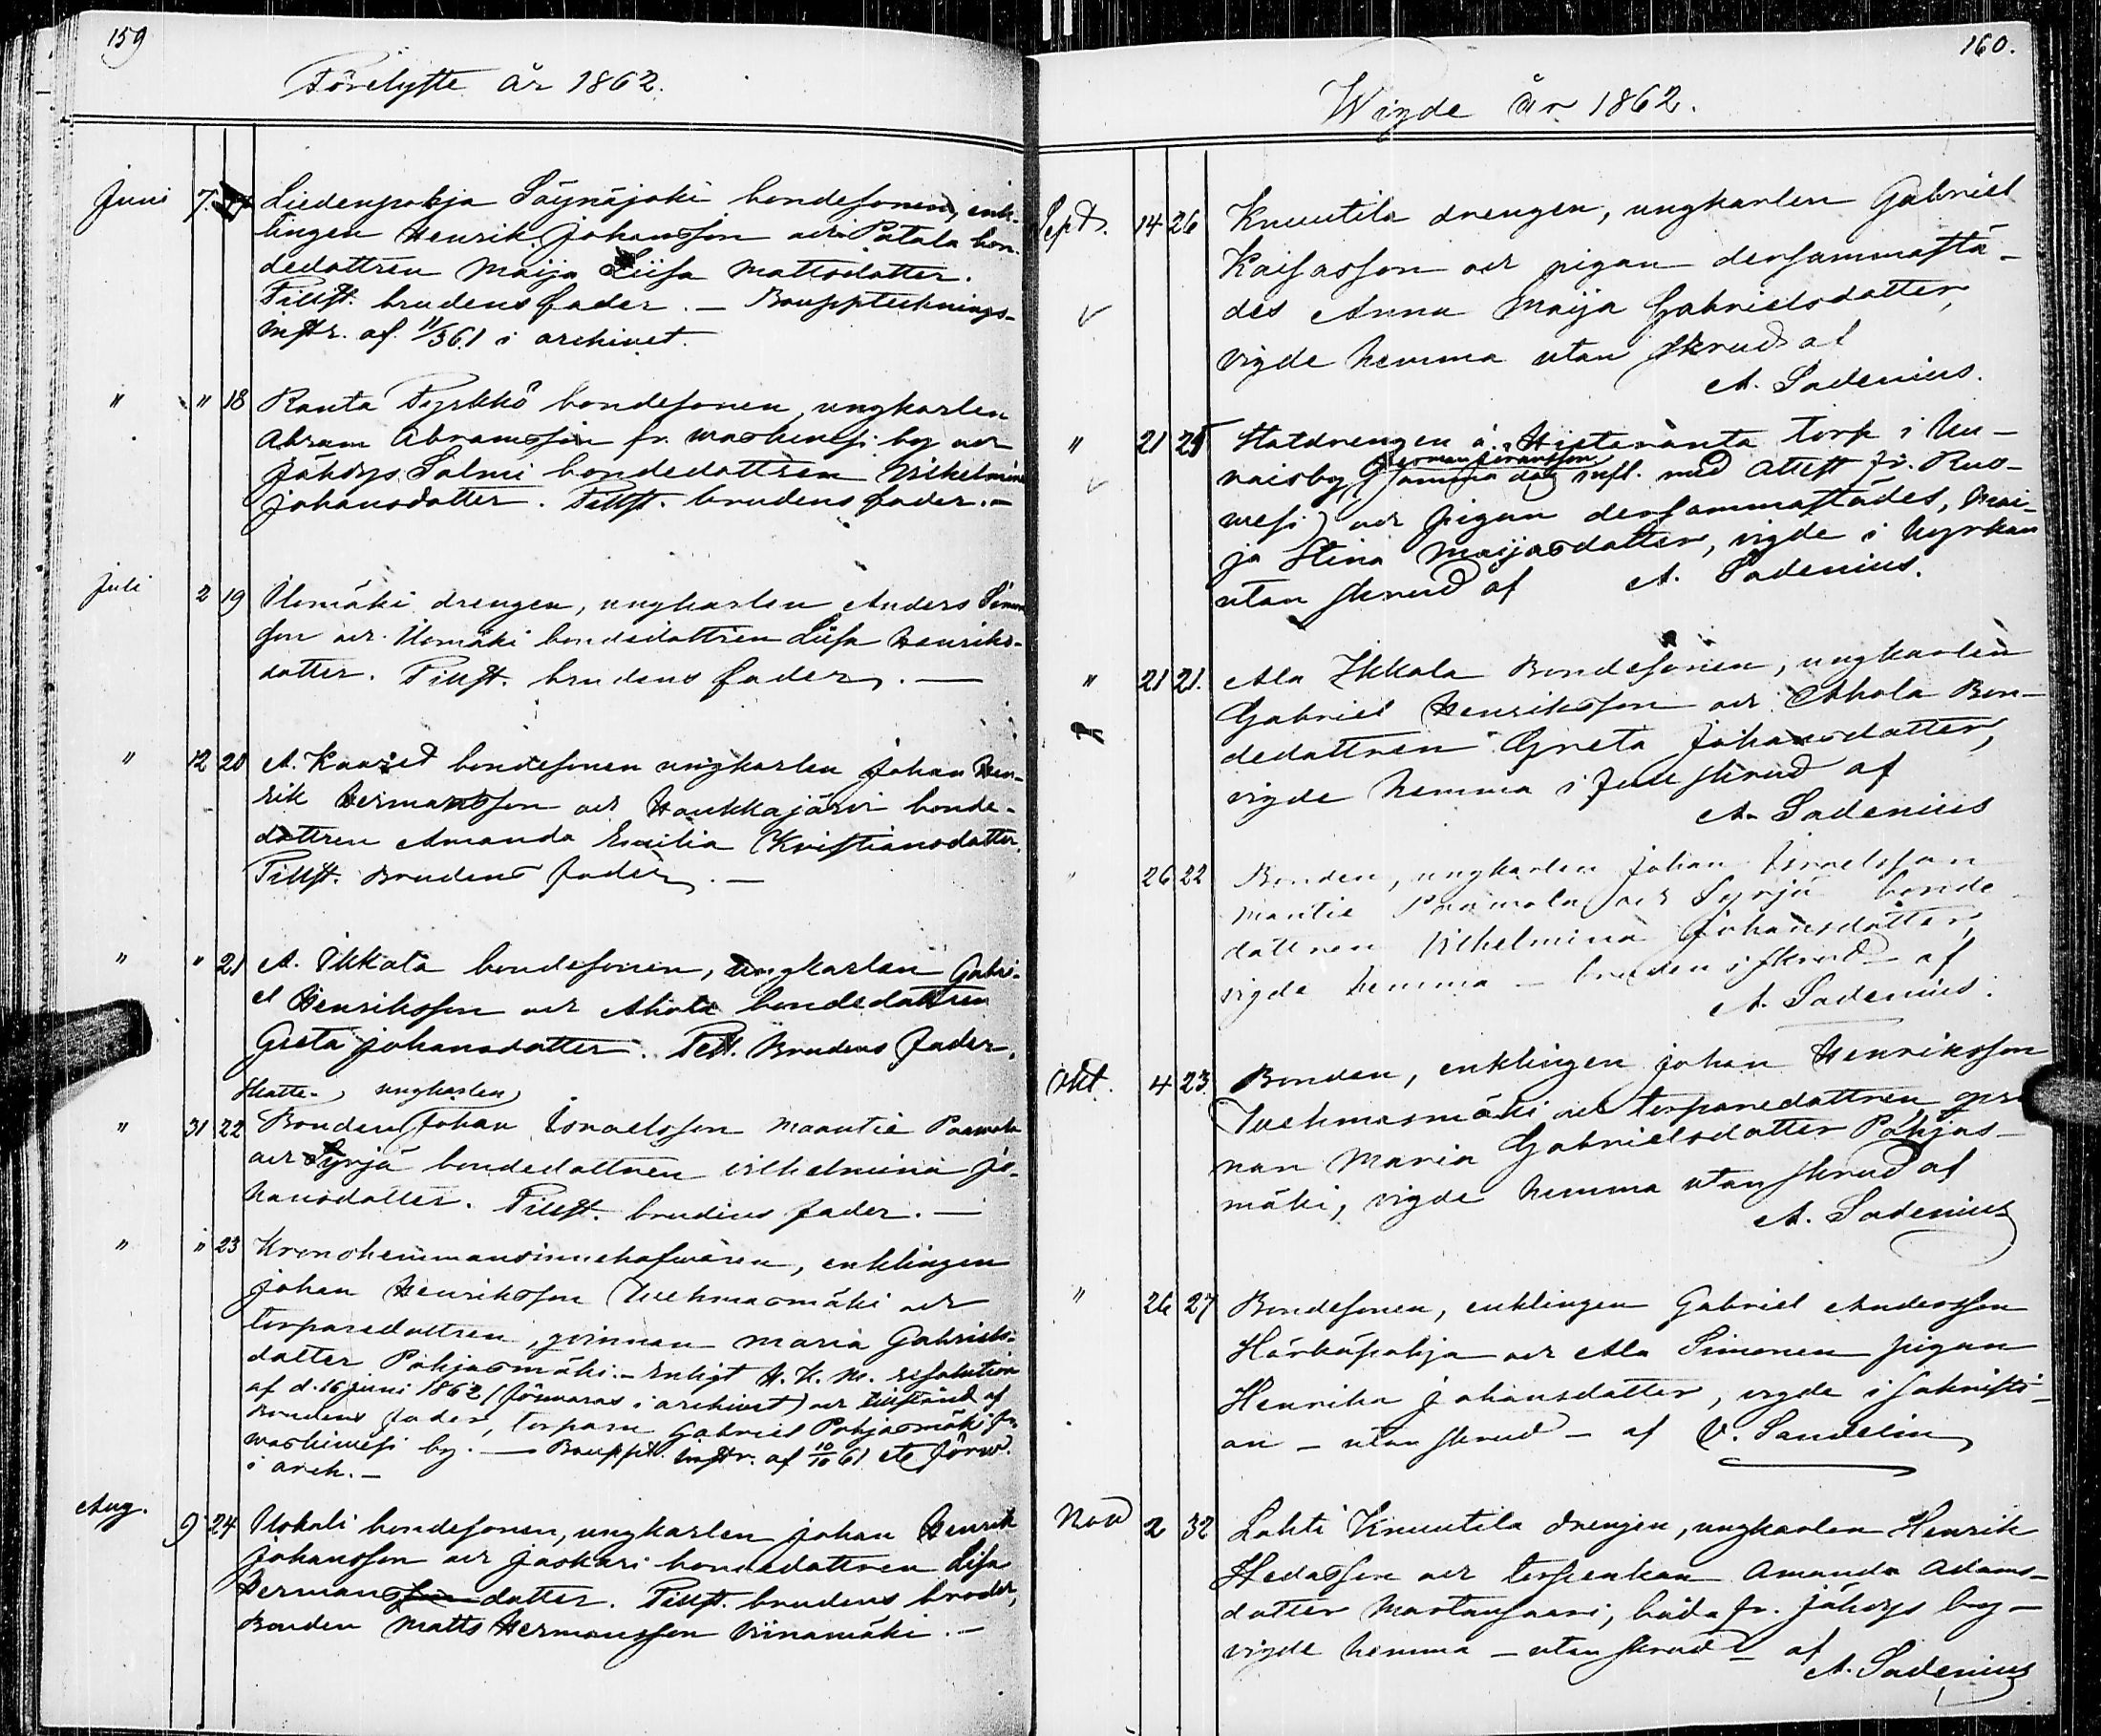 159
Förelyste år 1862.
Juni 7. 17 Liedenpohja Säynäjoki bondesonen, enk-
lingen Henrik Johansson och Patala bon-
dedottren Maija Liisa Mattsdotter.
Tillst. brudens fader. – Boupptecknings-
instr. af 11/3 61 i archivet.
" " 18 Ranta Pyrkkö bondesonen, ungkarlen
Abram Abramsson fr. Waskivesi by och
Jäkdys Salmi bondedottren Vilhelmina
Johansdotter. Tillst. brudens fader. –
Juli 2 19 Ylomäki drengen, ungkarlen Anders Simon
son och Ilomäki bondedottren Liisa Henriks-
dotter. Tillst. brudens fader. –
" 12 20 A. Kaared bondesonen ungkarlen Johan Hen-
rik Hermansson och Haukkajärvi bonde-
dottren Amanda Emilia Kristiansdotter.
Tillst. brudens fader. –
" " 21 A. Ikkala bondesonen, ungkarlen Gabri-
el Henriksson och Ahola bondedottren
Greta Johansdotter. Till. brudens fader.
Skatte- ungkarlen
" 31 22 Bonden Johan Israelsson Maantie Paamala
och Syrjä bondedottren Vilhelmina Jo-
hansdotter. Tillst. brudens fader. –
" " 23 Kronohemmansinnehafwaren, enklingen
Johan Henriksson Tuehmasmäki och
torparedottren, qvinnan Maria Gabriels-
dotter Pohjasmäki. – Enligt H. K. M. resolution
af d. 16 juni 1862 (förwaras i archivet) och tillstånd af
brudens fader, torparn Gabriel Pohjasmäki fr.
Waskiwesi by. – Bouppt. instr. af 10/10 61 etc förw.
i arch. –
Aug. 9 24 Yskali bondesonen, ungkarlen Johan Henrik
Johansson och Jaskari bondedottren Lisa
Hermansdotter. Tillst. brudens broder,
Bonden Matts Hermansson Viinamäki. –
160.
Wigde år 1862.
Sept. 14 26 Knuutila drengen, ungkarlen Gabriel
Kaisasson och pigan dersammastä-
des Anna Maija Gabrielsdotter,
vigde hemma utan skrud af
A. Sadenius.
" 21 25 Statdrengen å Hietaranta torp i Un-
Herman Göransson
naisby (samma dag infl. med attest fr. Ruo-
wesi) och pigan dersammastädes, Mai-
ja Stina Maijasdotter, vigde i kyrkan
utan skrud af A. Sadenius.
" 21 21. Ala Ikkala Bondesonen, ungkarlen
Gabriel Henriksson och Ahola Bon-
dedottren Greta Johansdotter,
vigde hemma i full skrud af
A. Sadenius
" 26 22 Bonden, ungkarlen Johan Israelsson
Maantie Paamala och Syrjä bonde
dottren Vilhelmina Johansdotter,
vigde hemma – bruden i skrud – af
A. Sadenius.
Okt. 4 23 Bonden, enklingen Johan Henriksson
Tuehmasmäki och torparedottren qvin
nan Maria Gabrielsdotter Pohjas-
mäki, vigde hemma utan skrud af
A. Sadenius
" 26 27 Bondesonen, enklingen Gabriel Andersson
Härkäpohja och Ala Simonen pigan
Henrika Johansdotter, vigde i sakristi-
an – utan skrud – af V. Sandelin
Nov 2 32 Lahti Knuutila drengen, ungkarlen Henrik
Hedasson och torpenkan Amanda Adams-
dotter Martansaari, båda fr. Jäkdys by –
vigde hemma – utan skrud – af
A. Sadenius